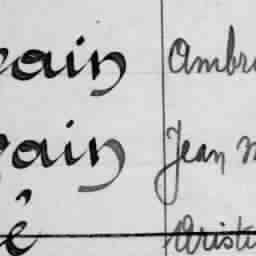 rain Ambr
rain Jean
é Aristi